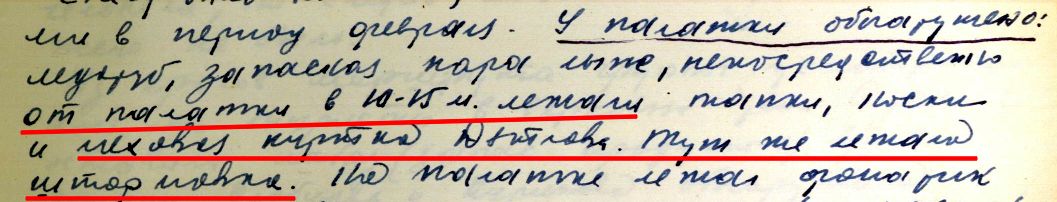 ли в период февраля. У палатки обнаружено:
ледоруб, запасная пара лыж, непосредственно
от палатки в 10-15 м. лежали тапки, носки
и меховая куртка Дятлова. Тут же лежала
штормовка. На палатке лежал фонарик